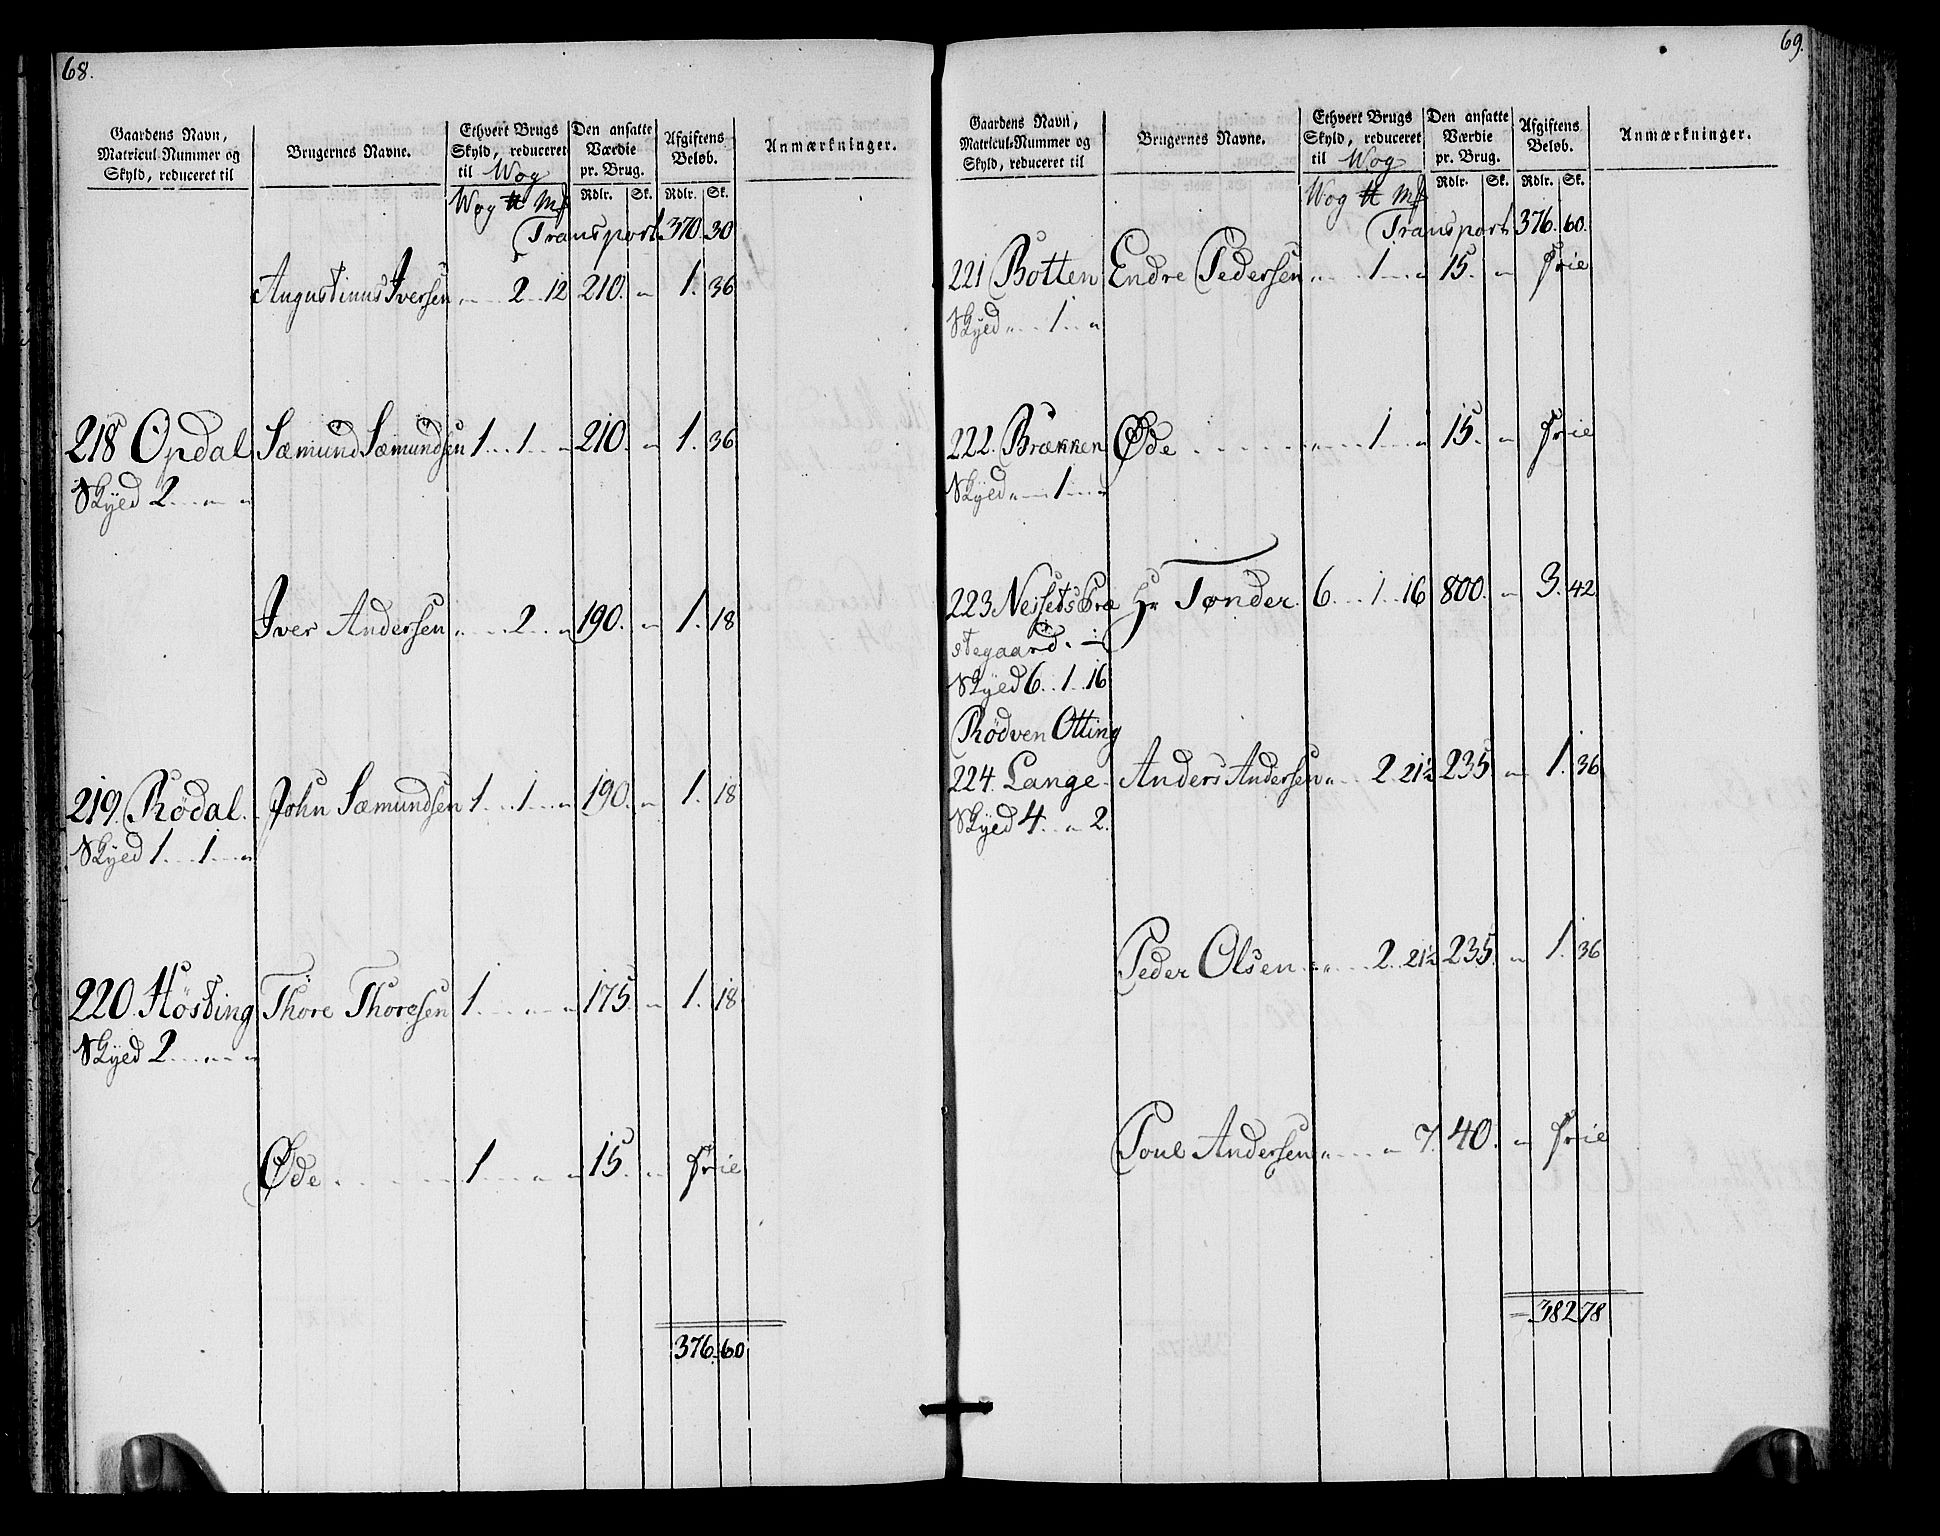 68.
Gaardens Navn, Matricul-Nummer og Skyld, reduceret til | Brugernes Navne. | Ethvert Brugs Skyld, reduceret til Wog | Den ansatte Værdie pr. Brug. | Afgiftens Beløb. | Anmærkninger.
Wog ℔ Mk | Rdlr. | Sk. | Rdlr. | Sk.
Transport 370. 30
Augustinus Iversen „ 2 12 210. „ 1. 36
218 Opdal Sæmund Sæmundsen 1 1 „ 210. „ 1. 36
Skyld 2 „ „
Iver Andersen „ 2 „ 190. „ 1. 18
219. Rödal. John Sæmundsen 1 1 „ 190. „ 1. 18
Skyld 1 1 „
220. Hösting Thore Thoresen 1 „ „ 175. „ 1. 18
Skyld 2 „ „
Øde 1 „ „ 15. „ frie
376. 60
69.
Gaardens Navn, Matricul-Nummer og Skyld, reduceret til | Brugernes Navne. | Ethvert Brugs Skyld, reduceret til Wog | Den ansatte Værdie pr. Brug. | Afgiftens Beløb. | Anmærkninger.
Wog ℔ Mk | Rdlr. | Sk. | Rdlr. | Sk.
Transport 376. 60.
221 Botten Endre Pedersen „ 1 „ 15. „ frie
Skyld „ 1 „
222. Brækken Øde „ 1 „ 15. „ frie
Skyld „ 1 „
223 Nessets Præ Hr Tønder. 6 1 16 800. „ 3. 42
stegaard. —
Skyld 6 1 16
Rödven Otting
224. Lange Anders Andersen „ 2 21½ 235 „ 1. 36
Skyld 4 „ 2.
Peder Olsen „ 2 21½ 235. „ 1. 36
Poul Andersen „ „ 7. 40. „ frie
382 78